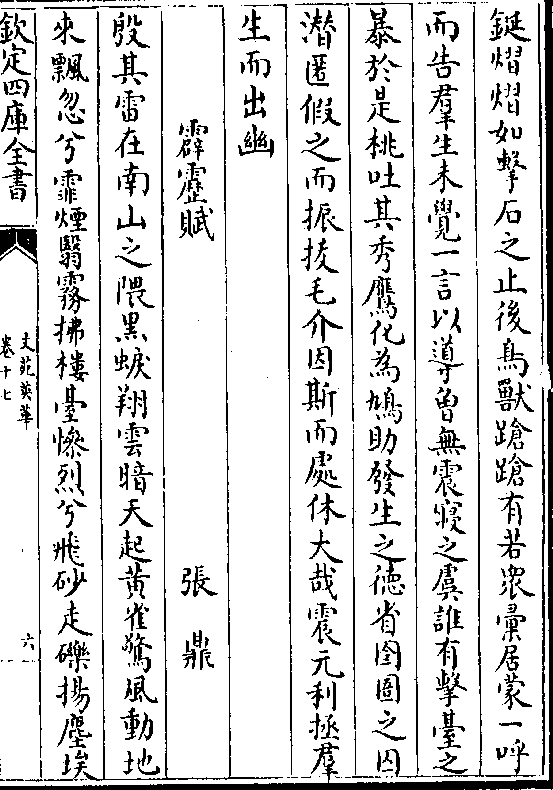 鋋熠熠如擊石之止後鳥獸蹌蹌有若衆彙居蒙一呼
而告羣生未覺一言以導曽無震寢之虞誰有擊臺之
暴於是桃吐其秀鷹化為鳩助發生之徳省囹圄之囚
潜匿假之而振㧞毛介因斯而處休大哉震元利拯羣
生而出幽
霹靂賦
張鼎
殷其雷在南山之隈黒蜧翔雲暗天起黄雀驚風動地
來飄忽兮霏煙翳霧拂樓臺慘烈兮飛砂走礫揚塵埃
欽定四庫全書
文苑英華
卷十七
六